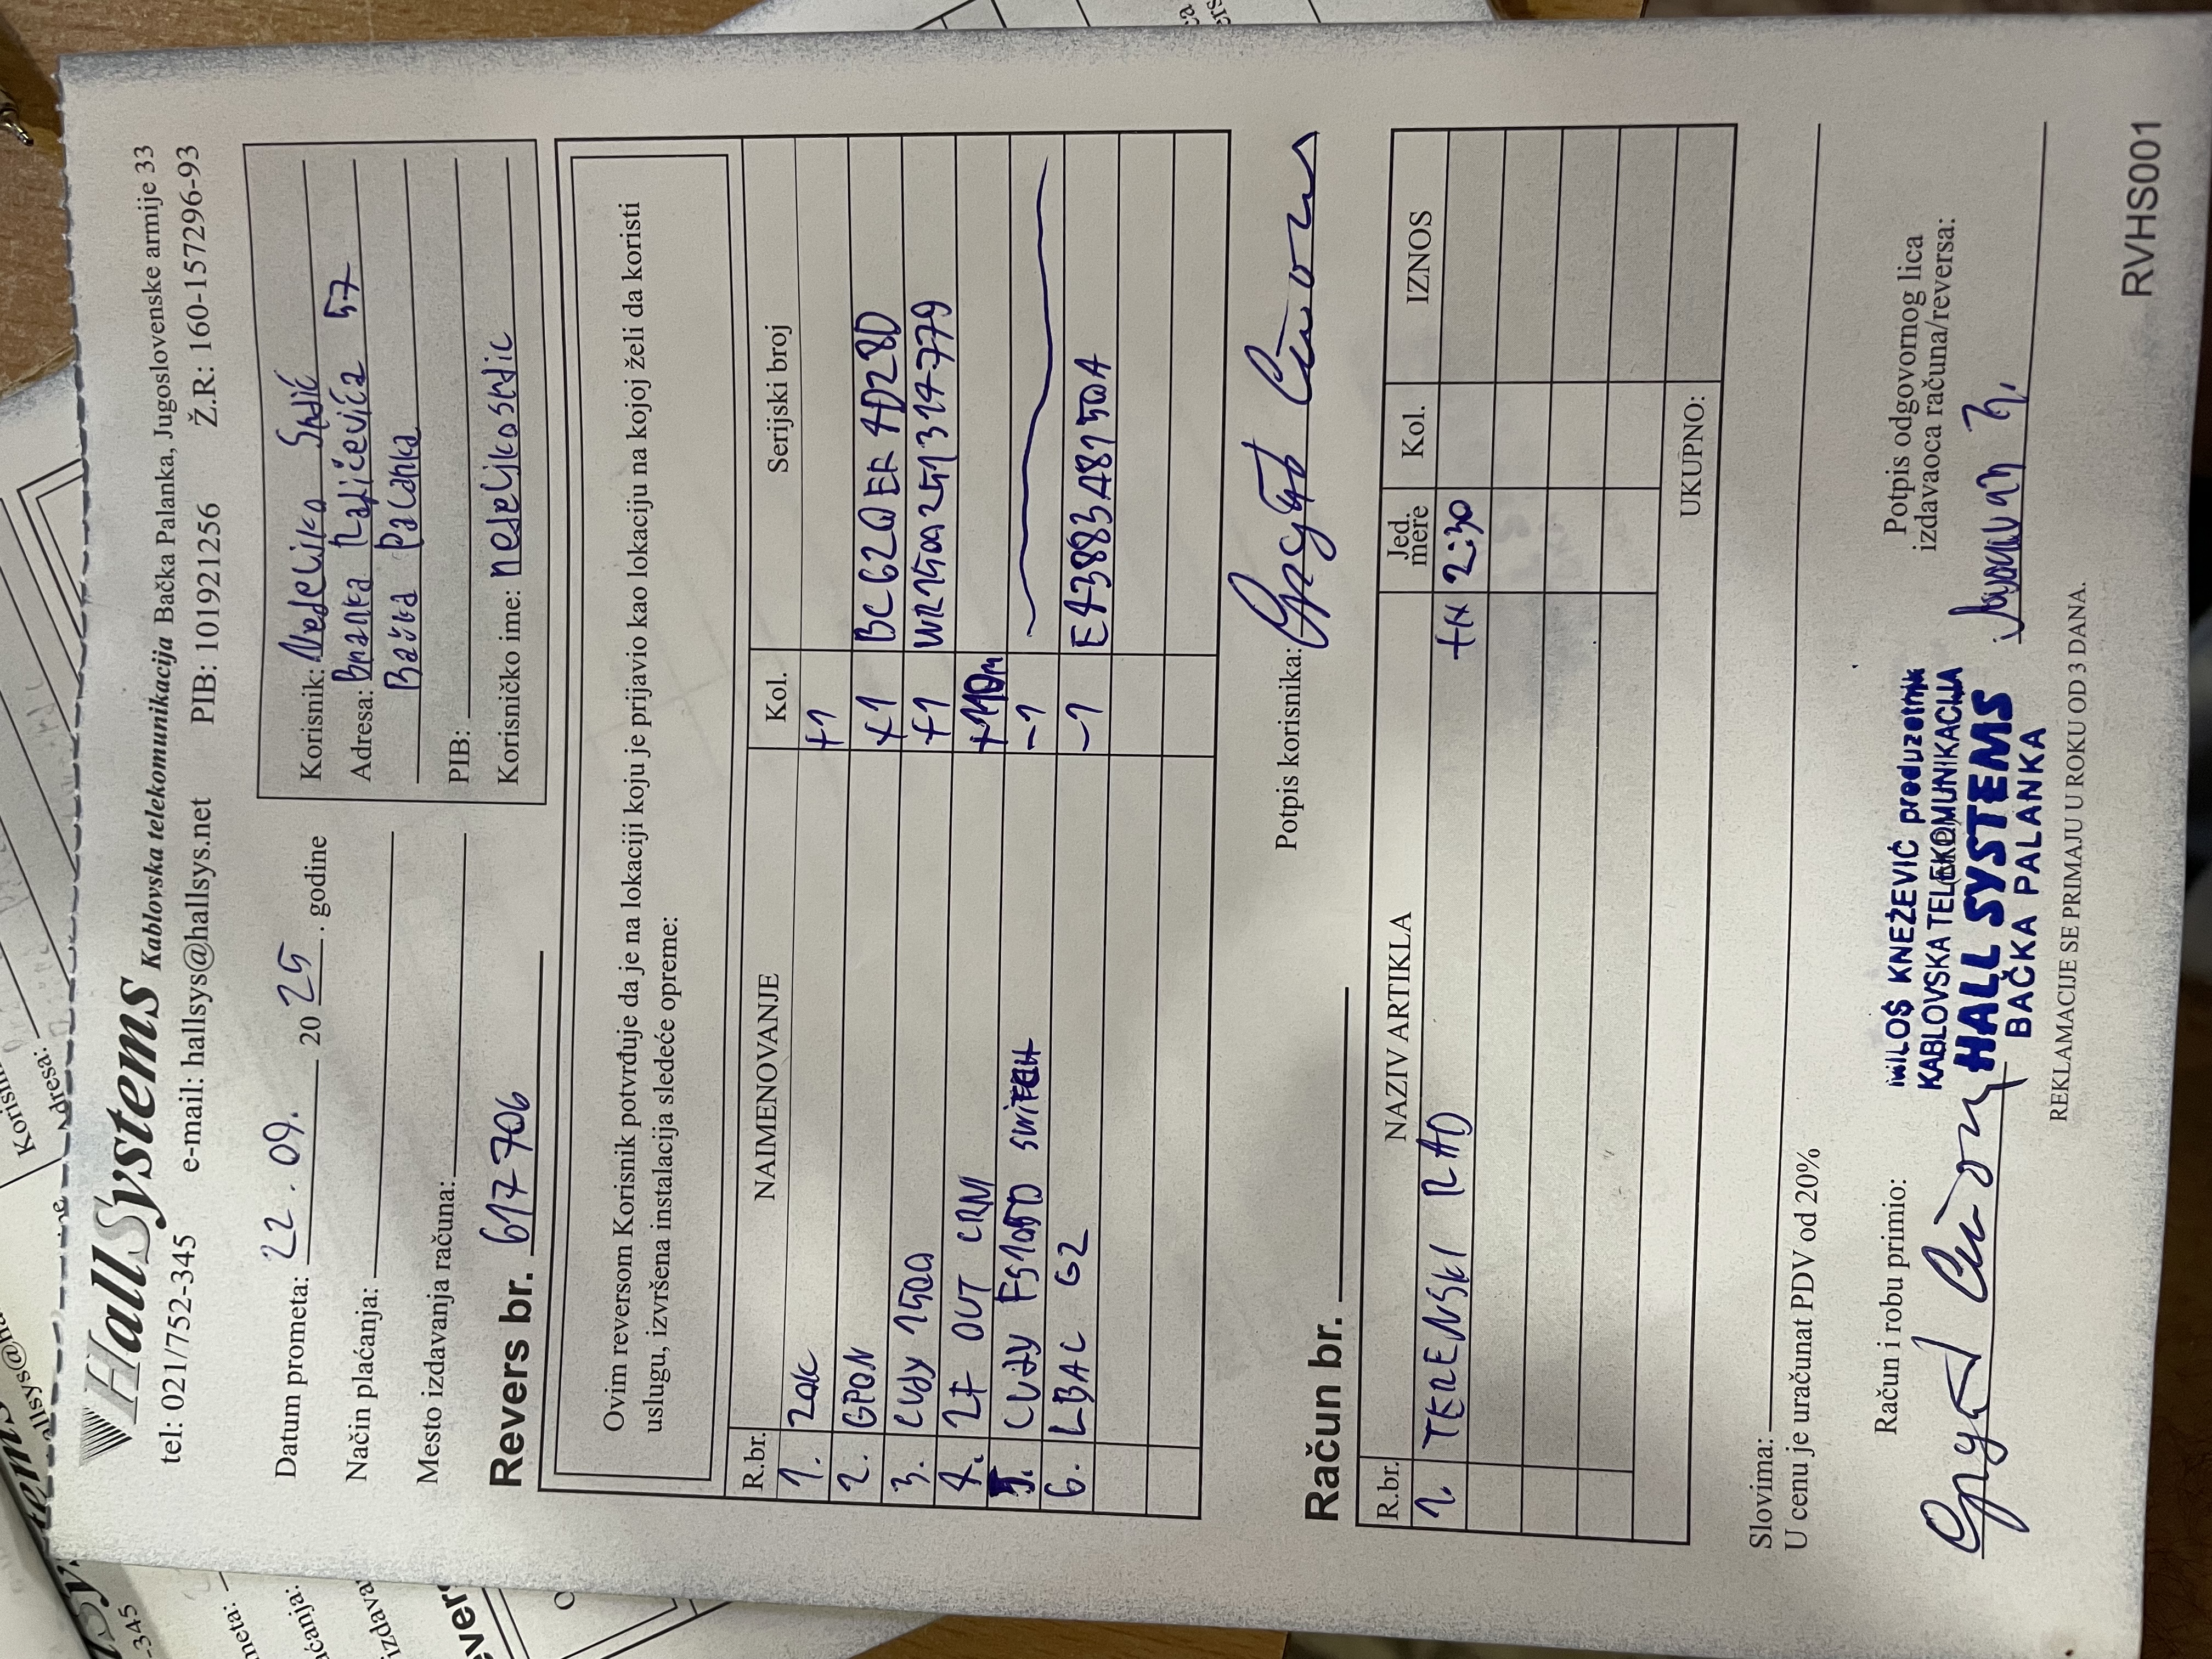 HallSystems Kablovska telekomunikacija Bačka Palanka, Jugoslovenske armije 33
tel: 021/752-345 e-mail: hallsys@hallsys.net PIB: 101921256 Ž.R: 160-157296-93
Datum prometa: 22.09. 2025. godine
Način plaćanja:
Mesto izdavanja računa:
Korisnik: Nedeljko Srdić
Adresa: Branka Radičevića 57
Bačka Palanka
PIB:
Korisničko ime: nedeljkosrdic
Revers br. 617706
Ovim reversom Korisnik potvrđuje da je na lokaciji koju je prijavio kao lokaciju na kojoj želi da koristi
uslugu, izvršena instalacija sledeće opreme:
R.br. NAIMENOVANJE Kol. Serijski broj
1. ZOK +1
2. GPON +1 BC62QEF4D28D
3. CUDY 1500 +1 WR1500251314779
4. 2F OUT CRNI +110m
5. CUDY SWITCH -1
6. LBAC G2 -1 E43883A8150A
Potpis korisnika:
Račun br.
R.br. NAZIV ARTIKLA Jed. mere Kol. IZNOS
1. TERENSKI RAD 2:30
UKUPNO:
Slovima:
U cenu je uračunat PDV od 20%
Račun i robu primio:
MILOŠ KNEŽEVIĆ preduzetnik
KABLOVSKA TELEKOMUNIKACIJA
HALL SYSTEMS
BAČKA PALANKA
Potpis odgovornog lica
izdavaoca računa/reversa:
REKLAMACIJE SE PRIMAJU U ROKU OD 3 DANA.
RVHS001